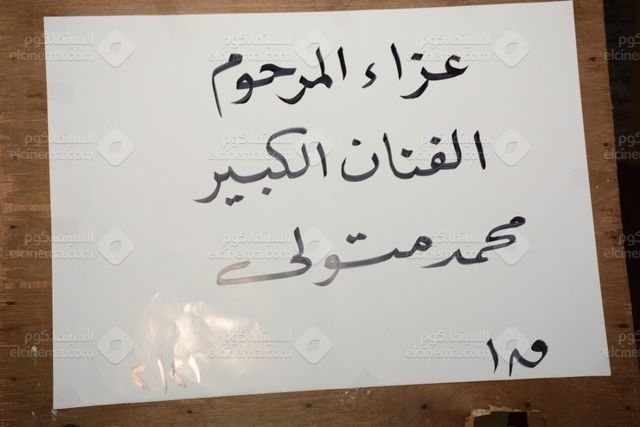 عزاء المرحوم
الفنان الكبير
محمد متولى
السينما.كوم
elcinema.com